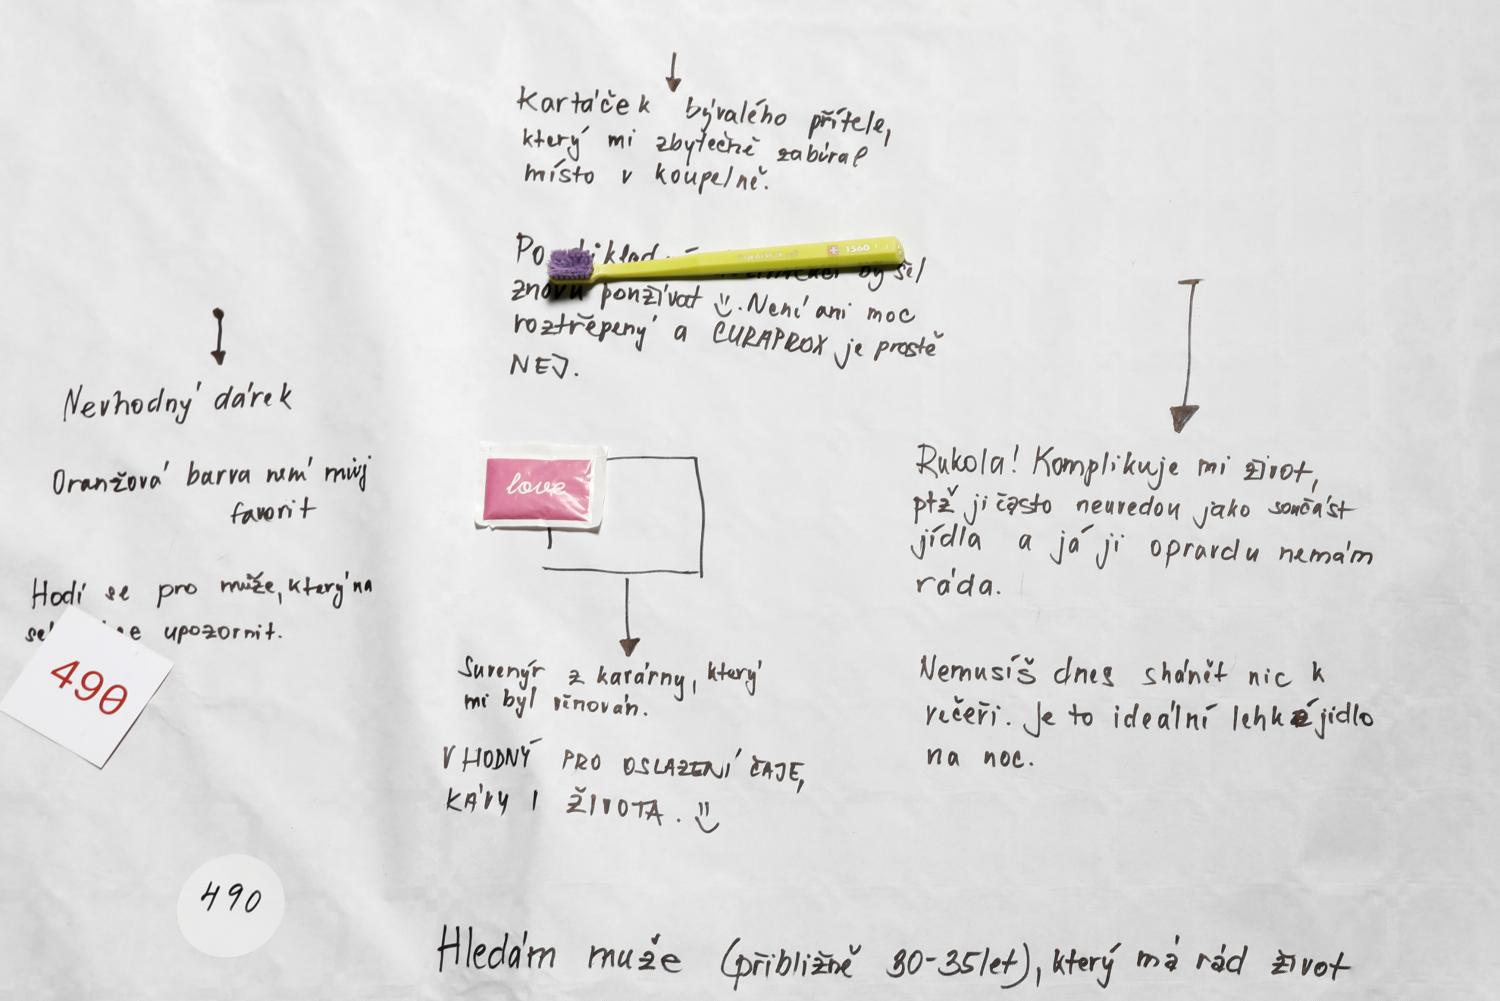 Kartáček bývalého přítele,
který mi zbytečně zabíral
místo v koupelně.
by šel
znovu používat Není ani moc
roztřepený a CURAPROX je prostě
NEJ.
1560
Nevhodný dárek
Oranžová barva není můj
favorit
Hodí se pro muže, který na
upozornit.
490
490
love
Suvenýr z kavárny, který
mi byl věnován.
VHODNÝ PRO OSLAZENÍ ČAJE,
KÁVY I ŽIVOTA.
Rukola! Komplikuje mi život,
ptž ji často neuvedou jako součást
jídla a já ji opravdu nemám
ráda.
Nemusíš dnes shánět nic k
večeři. Je to ideální lehké jídlo
na noc.
Hledám muže (přibližně 30-35let), který má rád život